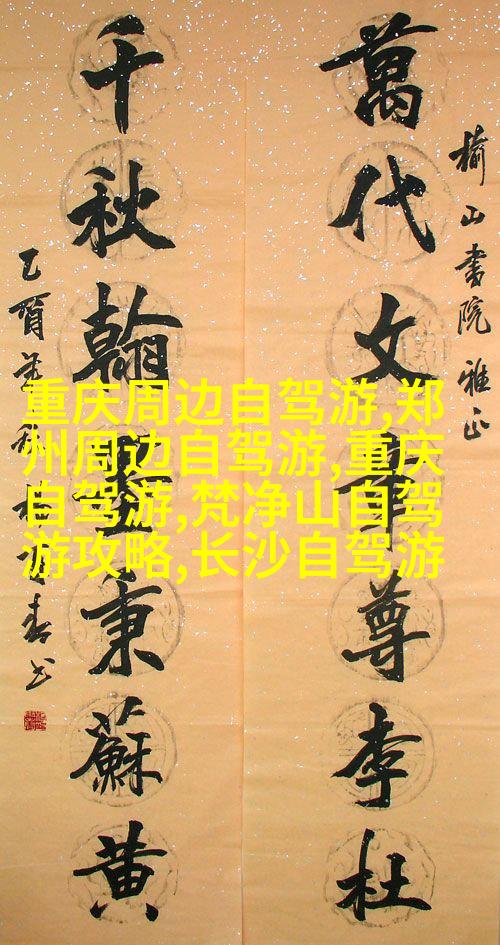 榆山書院雅正
萬代文章尊李杜
千秋翰墨秉蘇黄
乙酉
重庆周边自驾游,郑
州周边自驾游,重庆
自驾游,梵净山自驾
游攻略,长沙自驾游